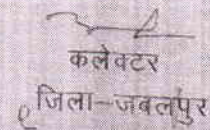 कलेक्टर
जिला-जबलपुर